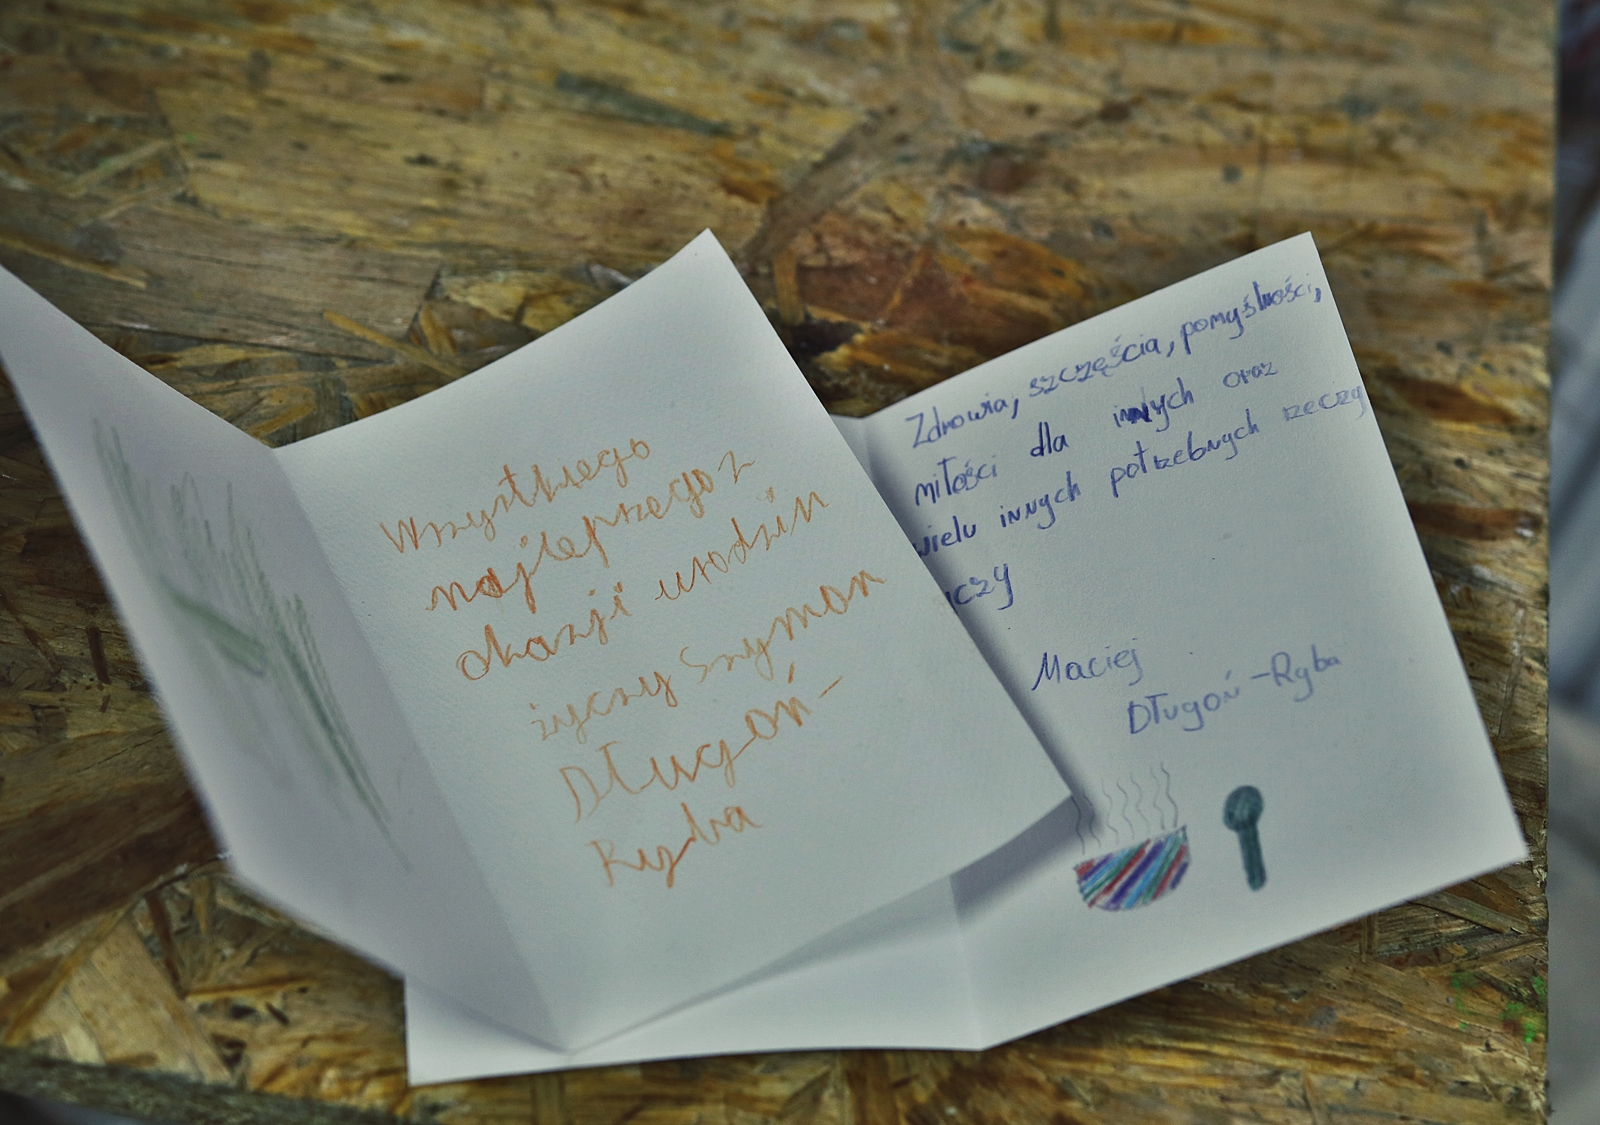 Wszystkiego
najlepszego z
okazji urodzin
życzy Szymon
Długoń-
Ryba
Zdrowia, szczęścia, pomyślności,
miłości dla innych oraz
wielu innych potrzebnych rzeczy
Maciej
Długoń-Ryba